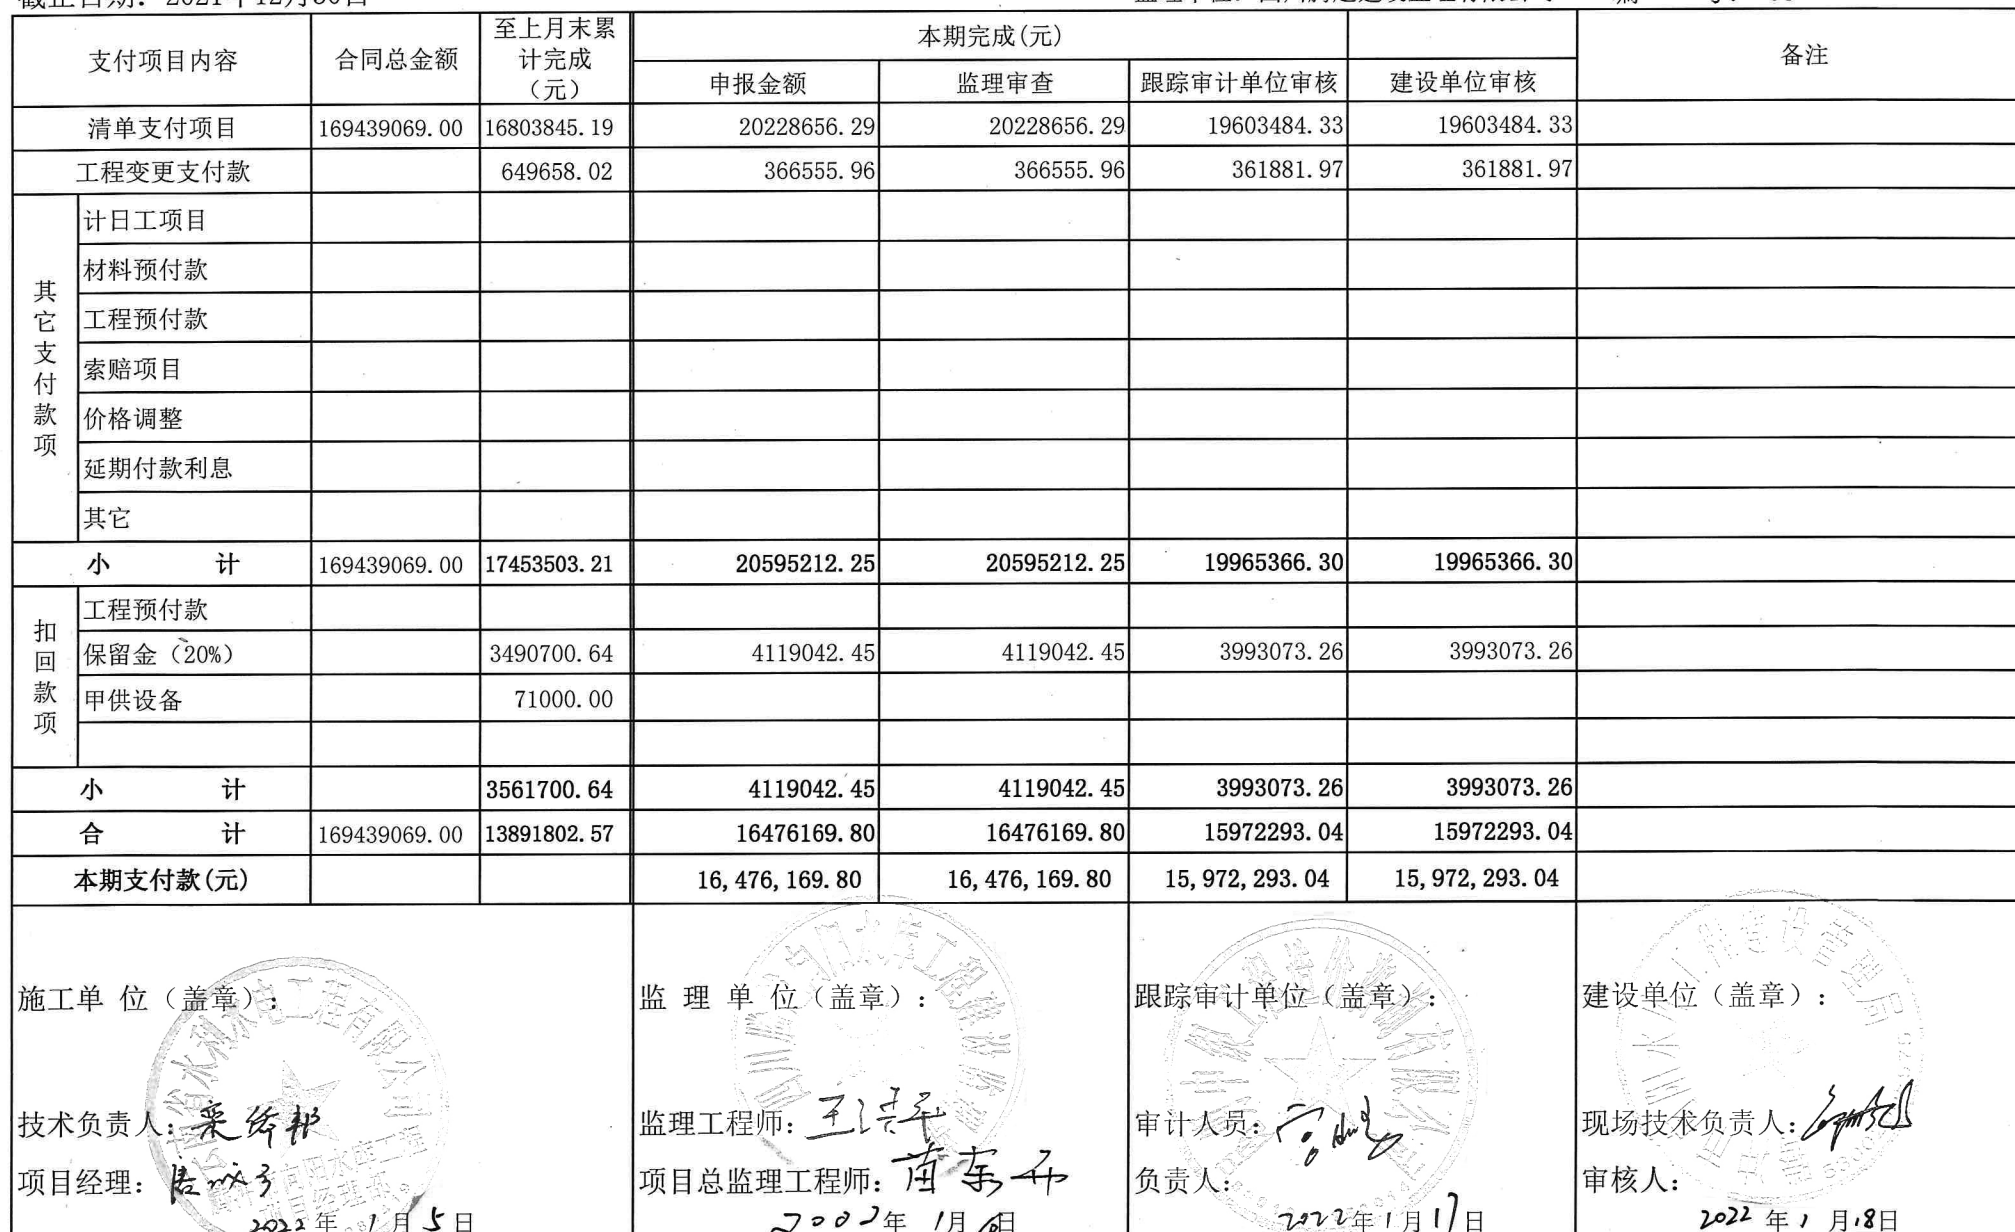 截止日期：2021年12月30日
支付项目内容 合同总金额 至上月末累计完成（元） 本期完成(元) 备注
申报金额 监理审查 跟踪审计单位审核 建设单位审核
清单支付项目 169439069.00 16803845.19 20228656.29 20228656.29 19603484.33 19603484.33
工程变更支付款 649658.02 366555.96 366555.96 361881.97 361881.97
其它支付款项
计日工项目
材料预付款
工程预付款
索赔项目
价格调整
延期付款利息
其它
小计 169439069.00 17453503.21 20595212.25 20595212.25 19965366.30 19965366.30
扣回款项
工程预付款
保留金（20%） 3490700.64 4119042.45 4119042.45 3993073.26 3993073.26
甲供设备 71000.00
小计 3561700.64 4119042.45 4119042.45 3993073.26 3993073.26
合计 169439069.00 13891802.57 16476169.80 16476169.80 15972293.04 15972293.04
本期支付款(元) 16,476,169.80 16,476,169.80 15,972,293.04 15,972,293.04
施工单 位（盖章）： 监 理 单 位（盖章）： 跟踪审计单位（盖章）： 建设单位（盖章）：
技术负责人： 监理工程师： 审计人员： 现场技术负责人：
项目经理： 项目总监理工程师： 负责人： 审核人：
2022年1月5日 年1月 日 2022年1月17日 2022年1月18日